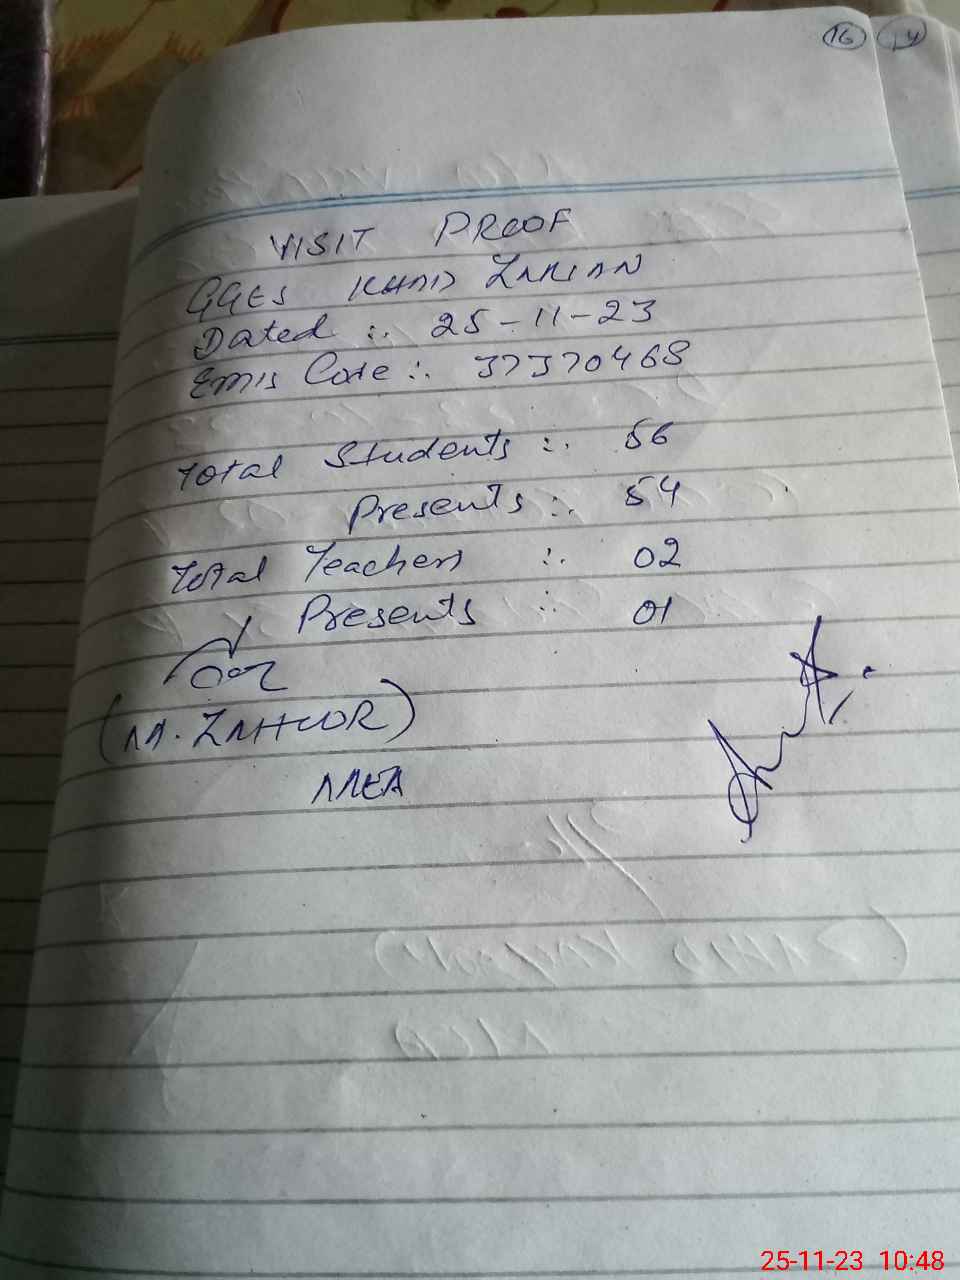 16
VISIT PROOF
GGES KHAD ZAKIAN
Dated :. 25-11-23
Emis Code :. 37370468
Total Students :. 56
Presents :. 54
Total Teachers :. 02
Presents :. 01
(M. ZAHOOR)
MEA
25-11-23 10:48